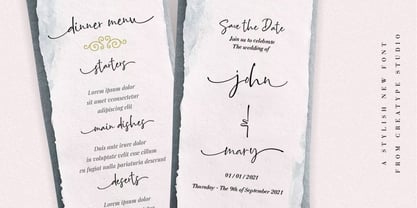 dinner menu
starters
Lorem ipsum dolor
sit amet consectetur
adipiscing elit
main dishes
Duis aute irure dolor
in reprehenderit in voluptate
nulla bore pariatur
deserts
Lorem ipsum dolor
Save the Date
Join us to celebrate
The wedding of
john
&
mary
01 / 01 / 2021
Thursday - The 9th of September 2021
A STYLISH NEW FONT
FROM CREATYPE STUDIO